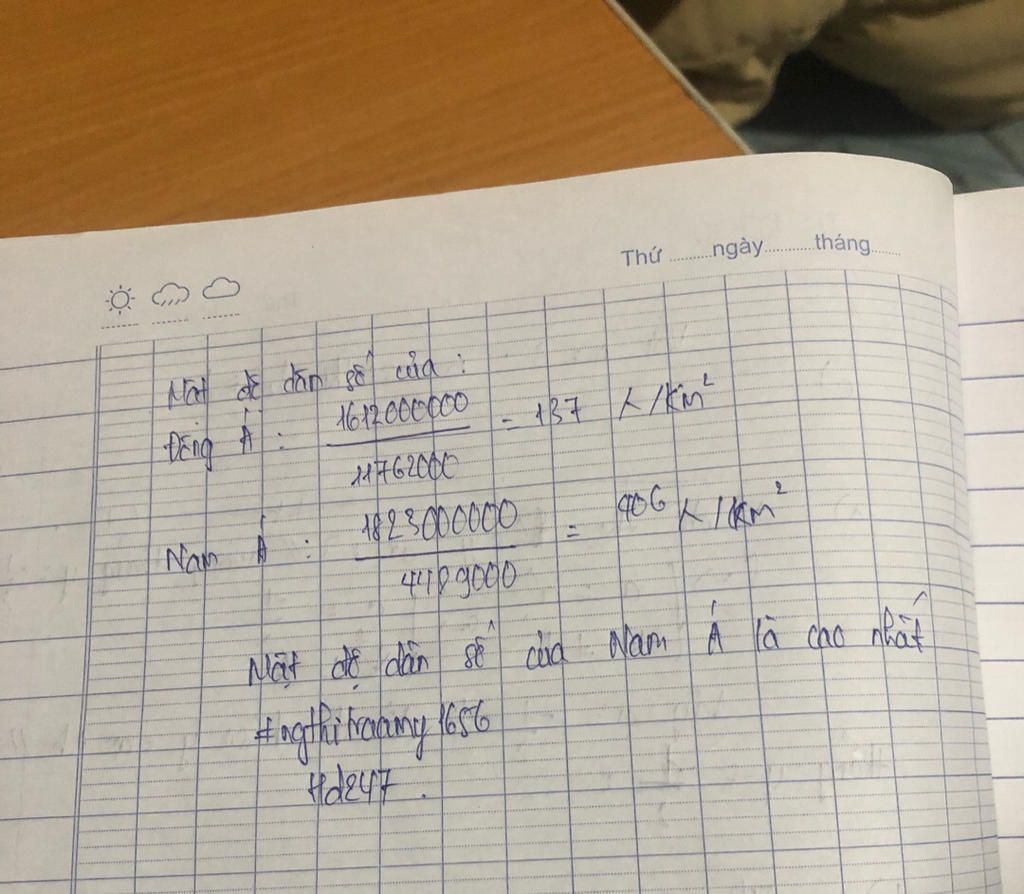 Thứ ..........ngày............tháng.......
Mật độ dân số của :
Đông Á : 1612000000 / 11762000 = 137 K/km²
Nam Á : 1823000000 / 4489000 = 406 K/km²
Mật độ dân số của Nam Á là cao nhất
#ngthitraamy1656
Hd247.